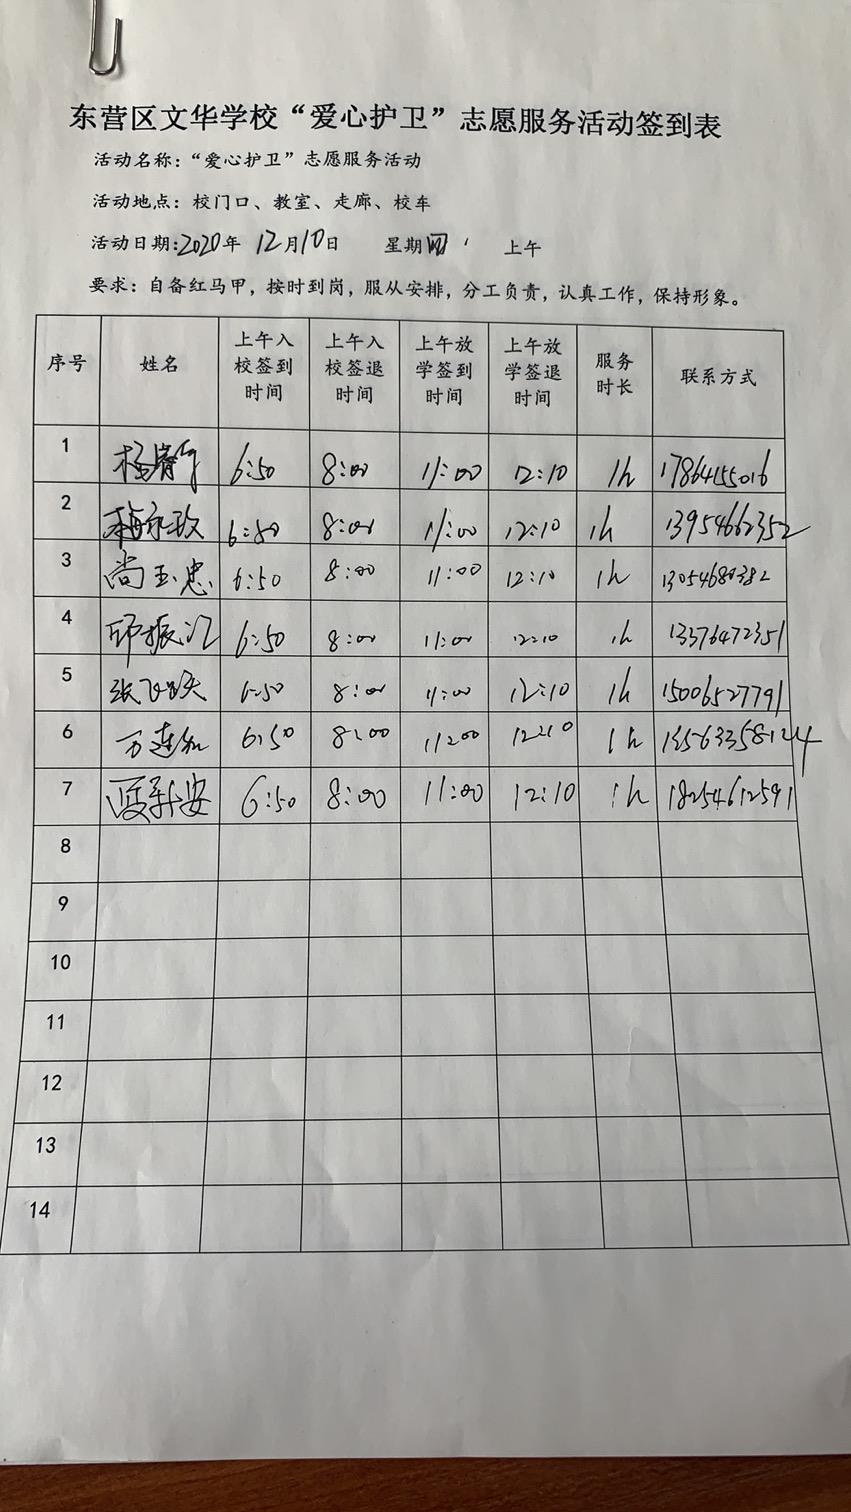 东营区文华学校“爱心护卫”志愿服务活动签到表
活动名称：“爱心护卫”志愿服务活动
活动地点：校门口、教室、走廊、校车
活动日期：2020年 12月10日 星期四 上午
要求：自备红马甲，按时到岗，服从安排，分工负责，认真工作，保持形象。
序号 姓名 上午入校签到时间 上午入校签退时间 上午放学签到时间 上午放学签退时间 服务时长 联系方式
1 6:50 8:00 11:00 12:10 1h 17864155016
2 6:50 8:00 11:00 12:10 1h 13954662352
3 尚玉忠 6:50 8:00 11:00 12:10 1h 13054680382
4 6:50 8:00 11:00 12:10 1h 13376472351
5 6:50 8:00 11:00 12:10 1h 15006527791
6 6:50 8:00 11:00 12:10 1h 13563358124
7 夏新安 6:50 8:00 11:00 12:10 1h 18254612591
8
9
10
11
12
13
14